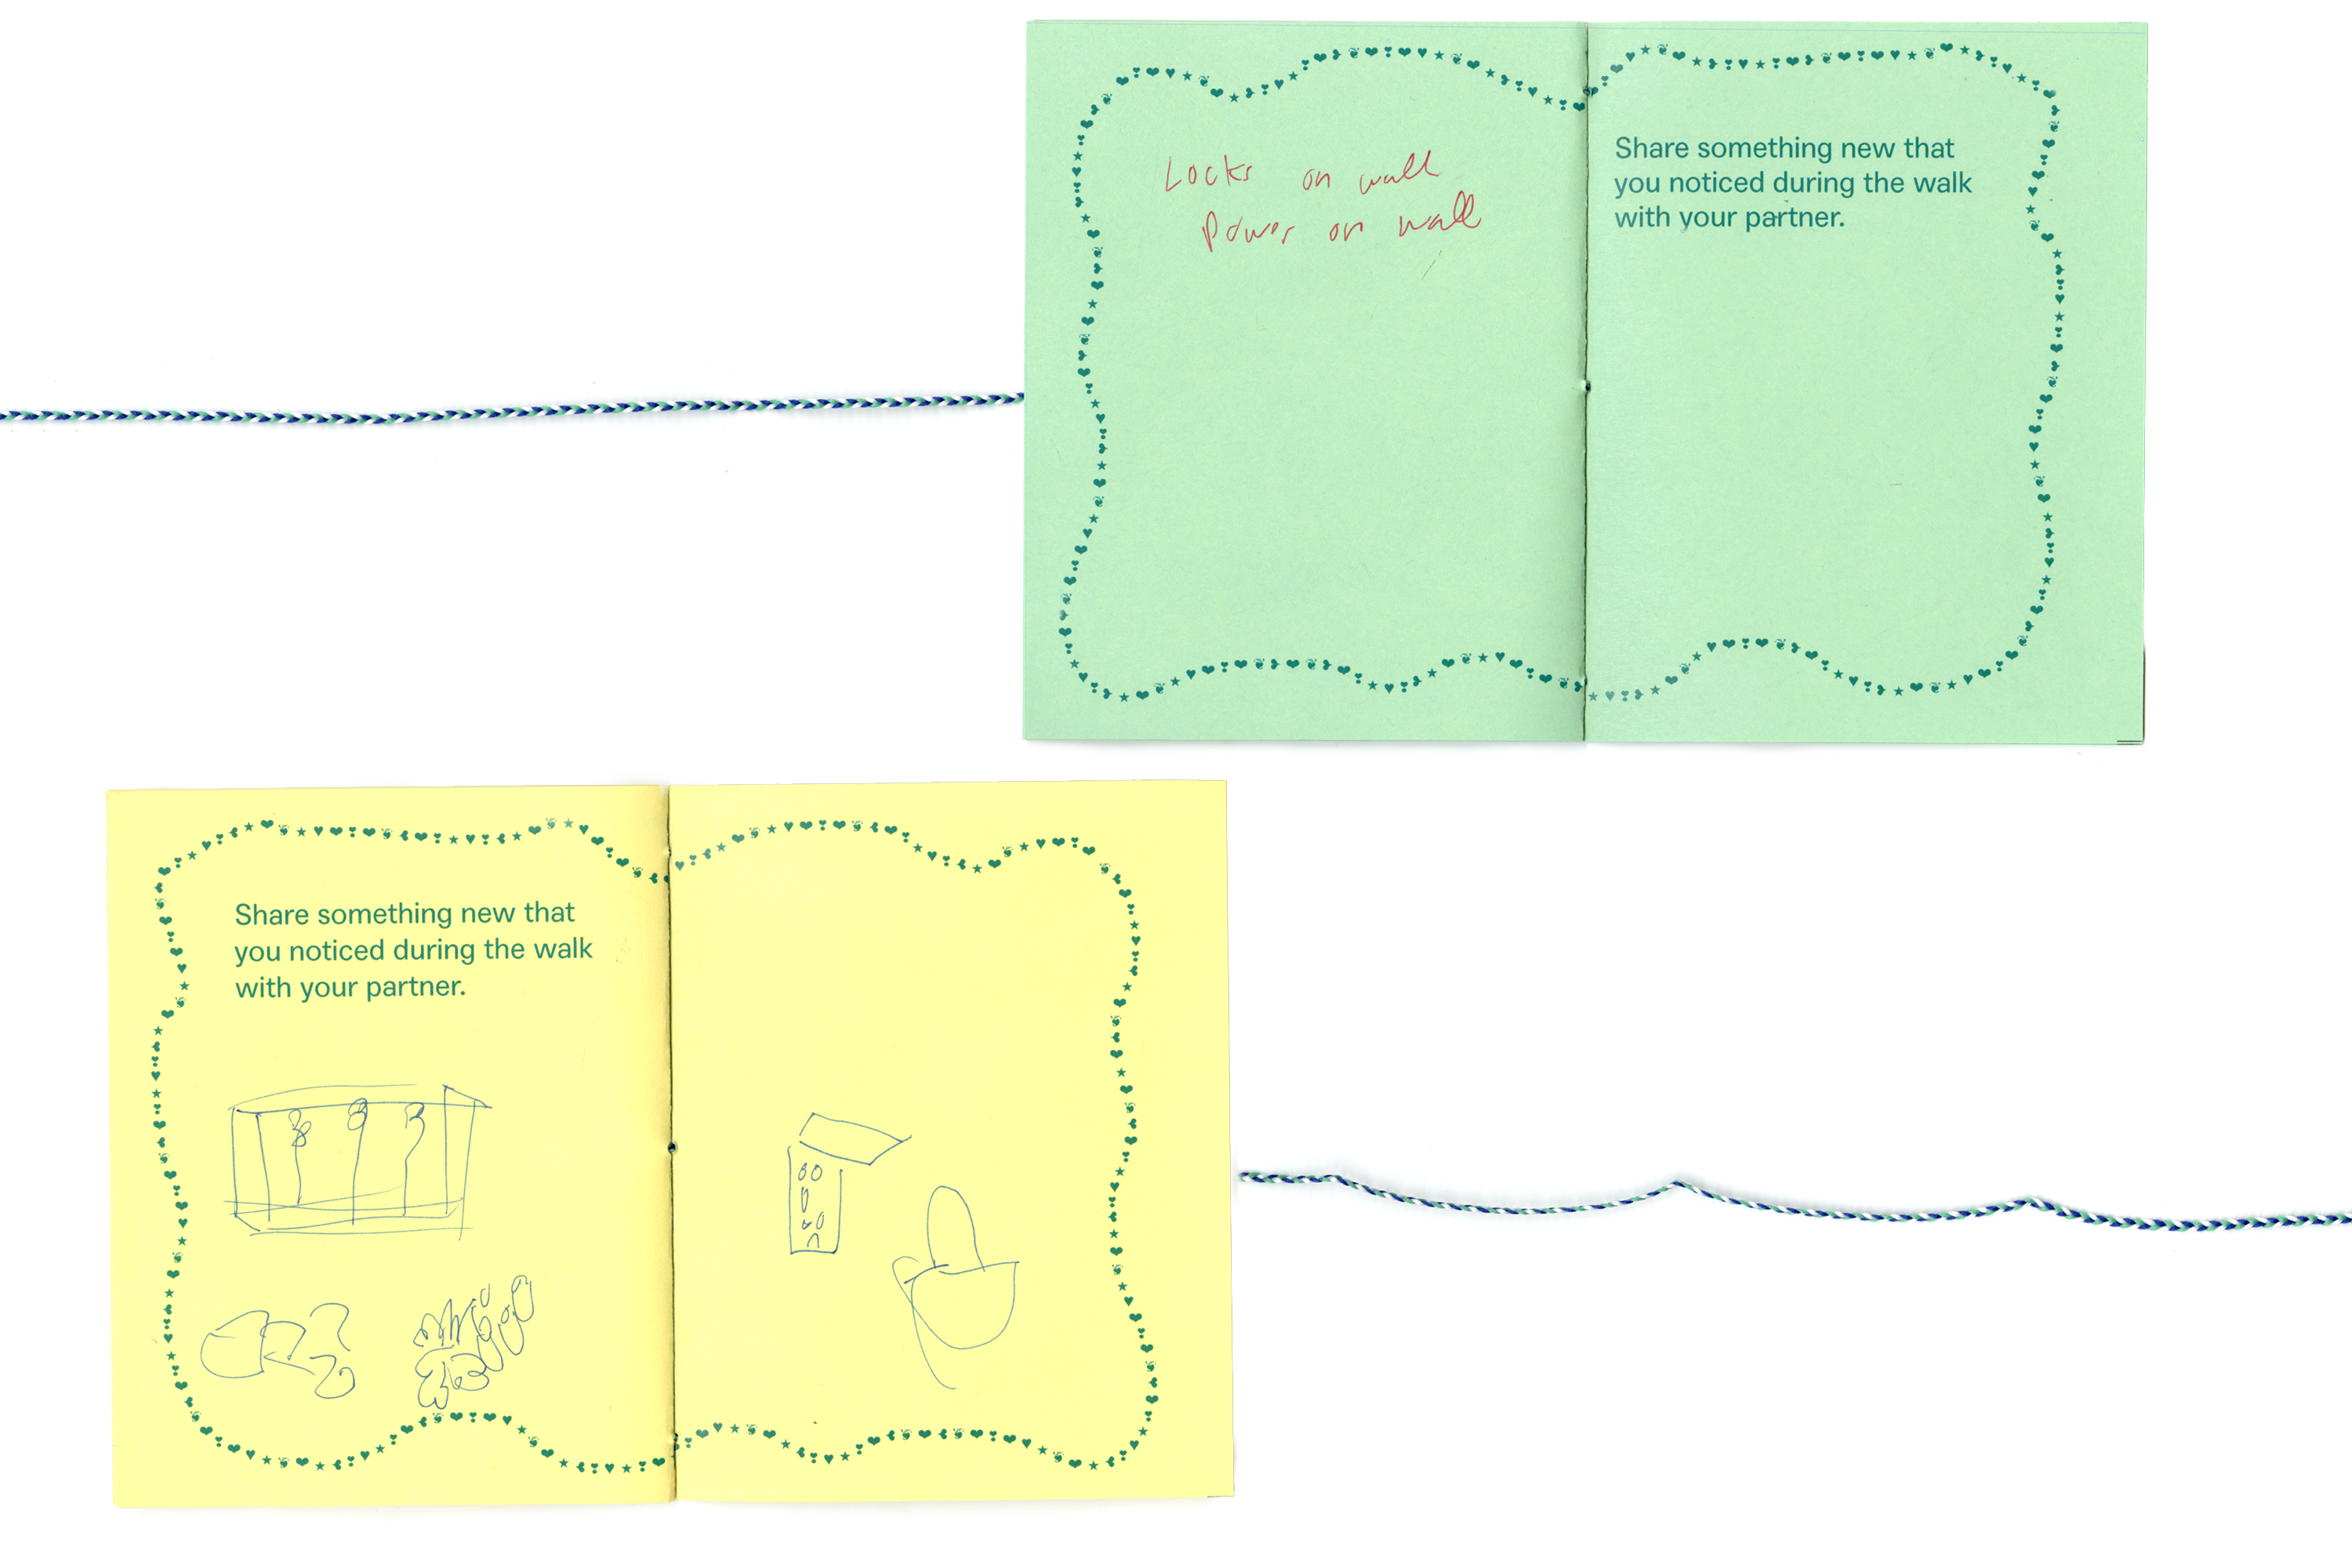 Locks on wall
Power on wall
Share something new that
you noticed during the walk
with your partner.
Share something new that
you noticed during the walk
with your partner.